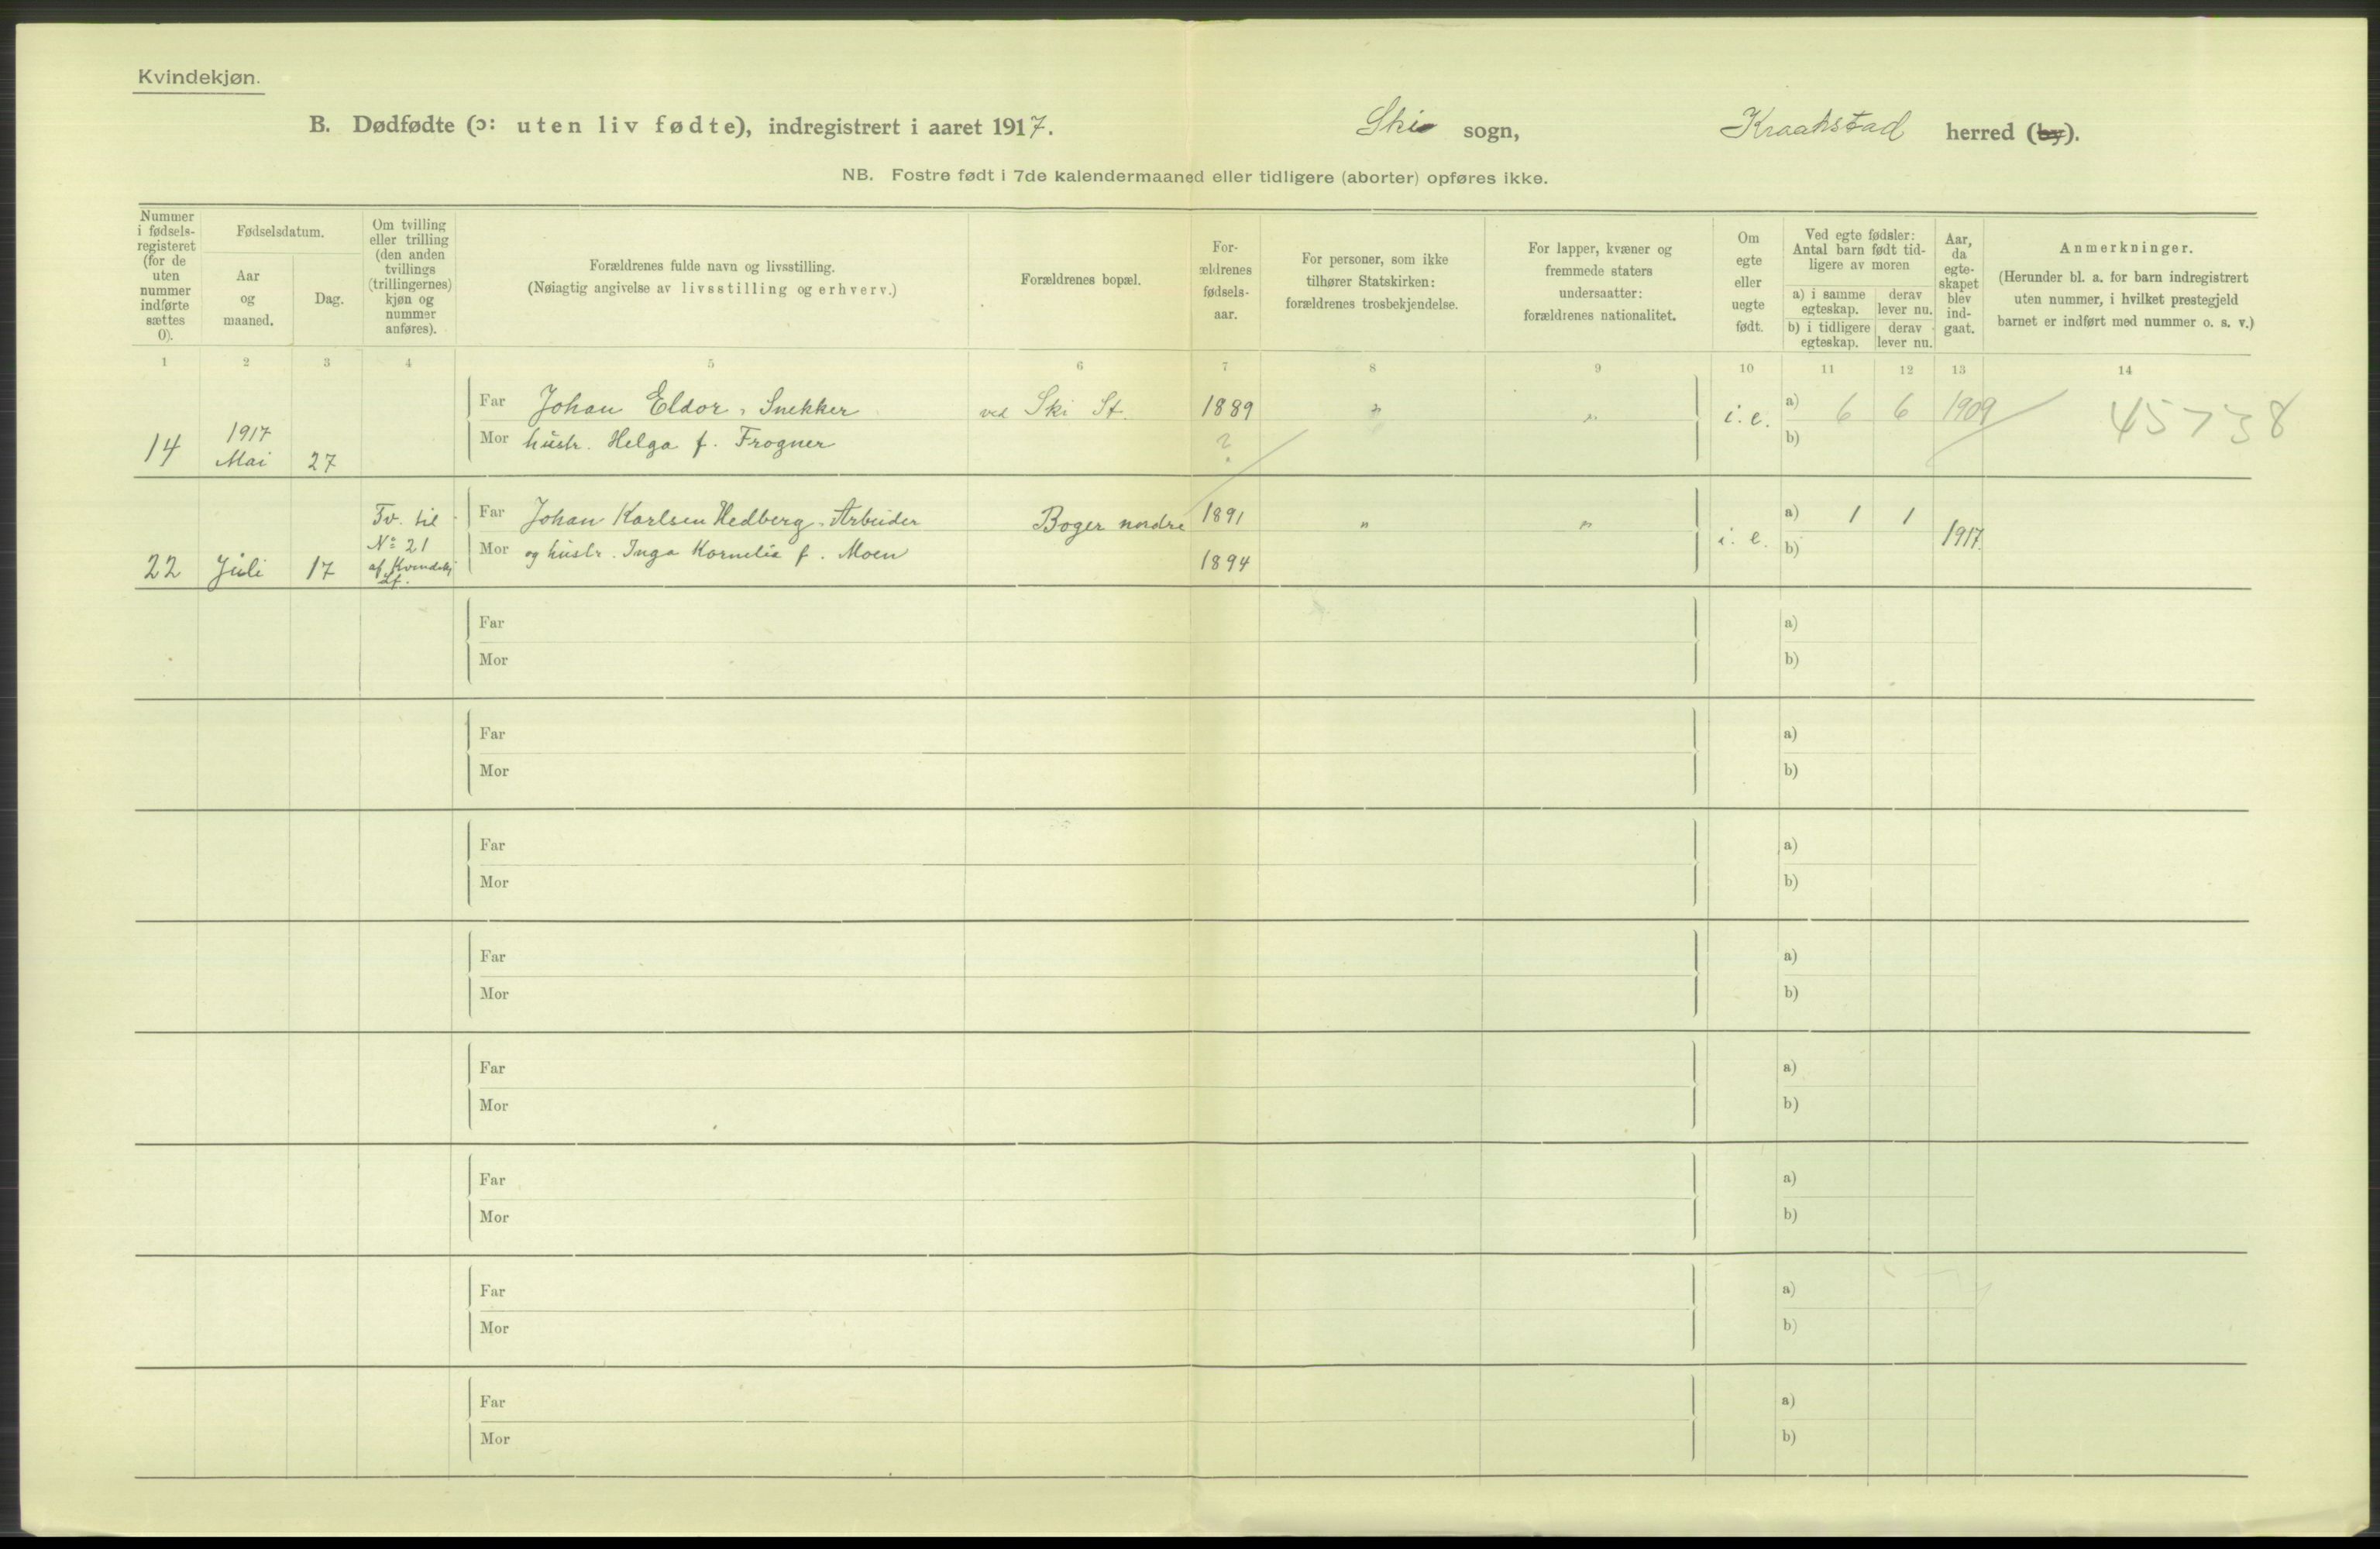 Kvindekjøn.
B. Dødfødte (ɔ: uten liv fødte), indregistrert i aaret 1917. Ski sogn, Kraakstad herred (by).
NB. Fostre født i 7de kalendermaaned eller tidligere (aborter) opføres ikke.
Nummer i fødsels-registeret (for de uten nummer indførte sættes 0).
Fødselsdatum.
Aar og maaned.
Dag.
Om tvilling eller trilling (den anden tvillings (trillingernes) kjøn og nummer anføres).
Forældrenes fulde navn og livsstilling.
(Nøiagtig angivelse av livsstilling og erhverv.)
Forældrenes bopæl.
For-ældrenes fødsels-aar.
For personer, som ikke tilhører Statskirken: forældrenes trosbekjendelse.
For lapper, kvæner og fremmede staters undersaatter: forældrenes nationalitet.
Om egte eller uegte født.
Ved egte fødsler: Antal barn født tid-ligere av moren
a) i samme egteskap. derav lever nu.
b) i tidligere egteskap. derav lever nu.
Aar, da egte-skapet blev ind-gaat.
Anmerkninger.
(Herunder bl. a. for barn indregistrert uten nummer, i hvilket prestegjeld barnet er indført med nummer o. s. v.)
1 2 3 4 5 6 7 8 9 10 11 12 13 14
Far Johan Eldor, Snekker ved Ski St. 1889 " " i. e. a) 6 6 1909 45738
14 1917 Mai 27 Mor hustr. Helga f. Frogner ? b)
Tv. til No 21 af Kvindekj
Far Johan Karlsen Hedberg, Arbeider Boger nordre 1891 " " i. e. a) 1 1 1917
22 Juli 17 Mor og hustr. Inga Kornelia f. Moen 1894 b)
Far a)
Mor b)
Far a)
Mor b)
Far a)
Mor b)
Far a)
Mor b)
Far a)
Mor b)
Far a)
Mor b)
Far a)
Mor b)
Far a)
Mor b)